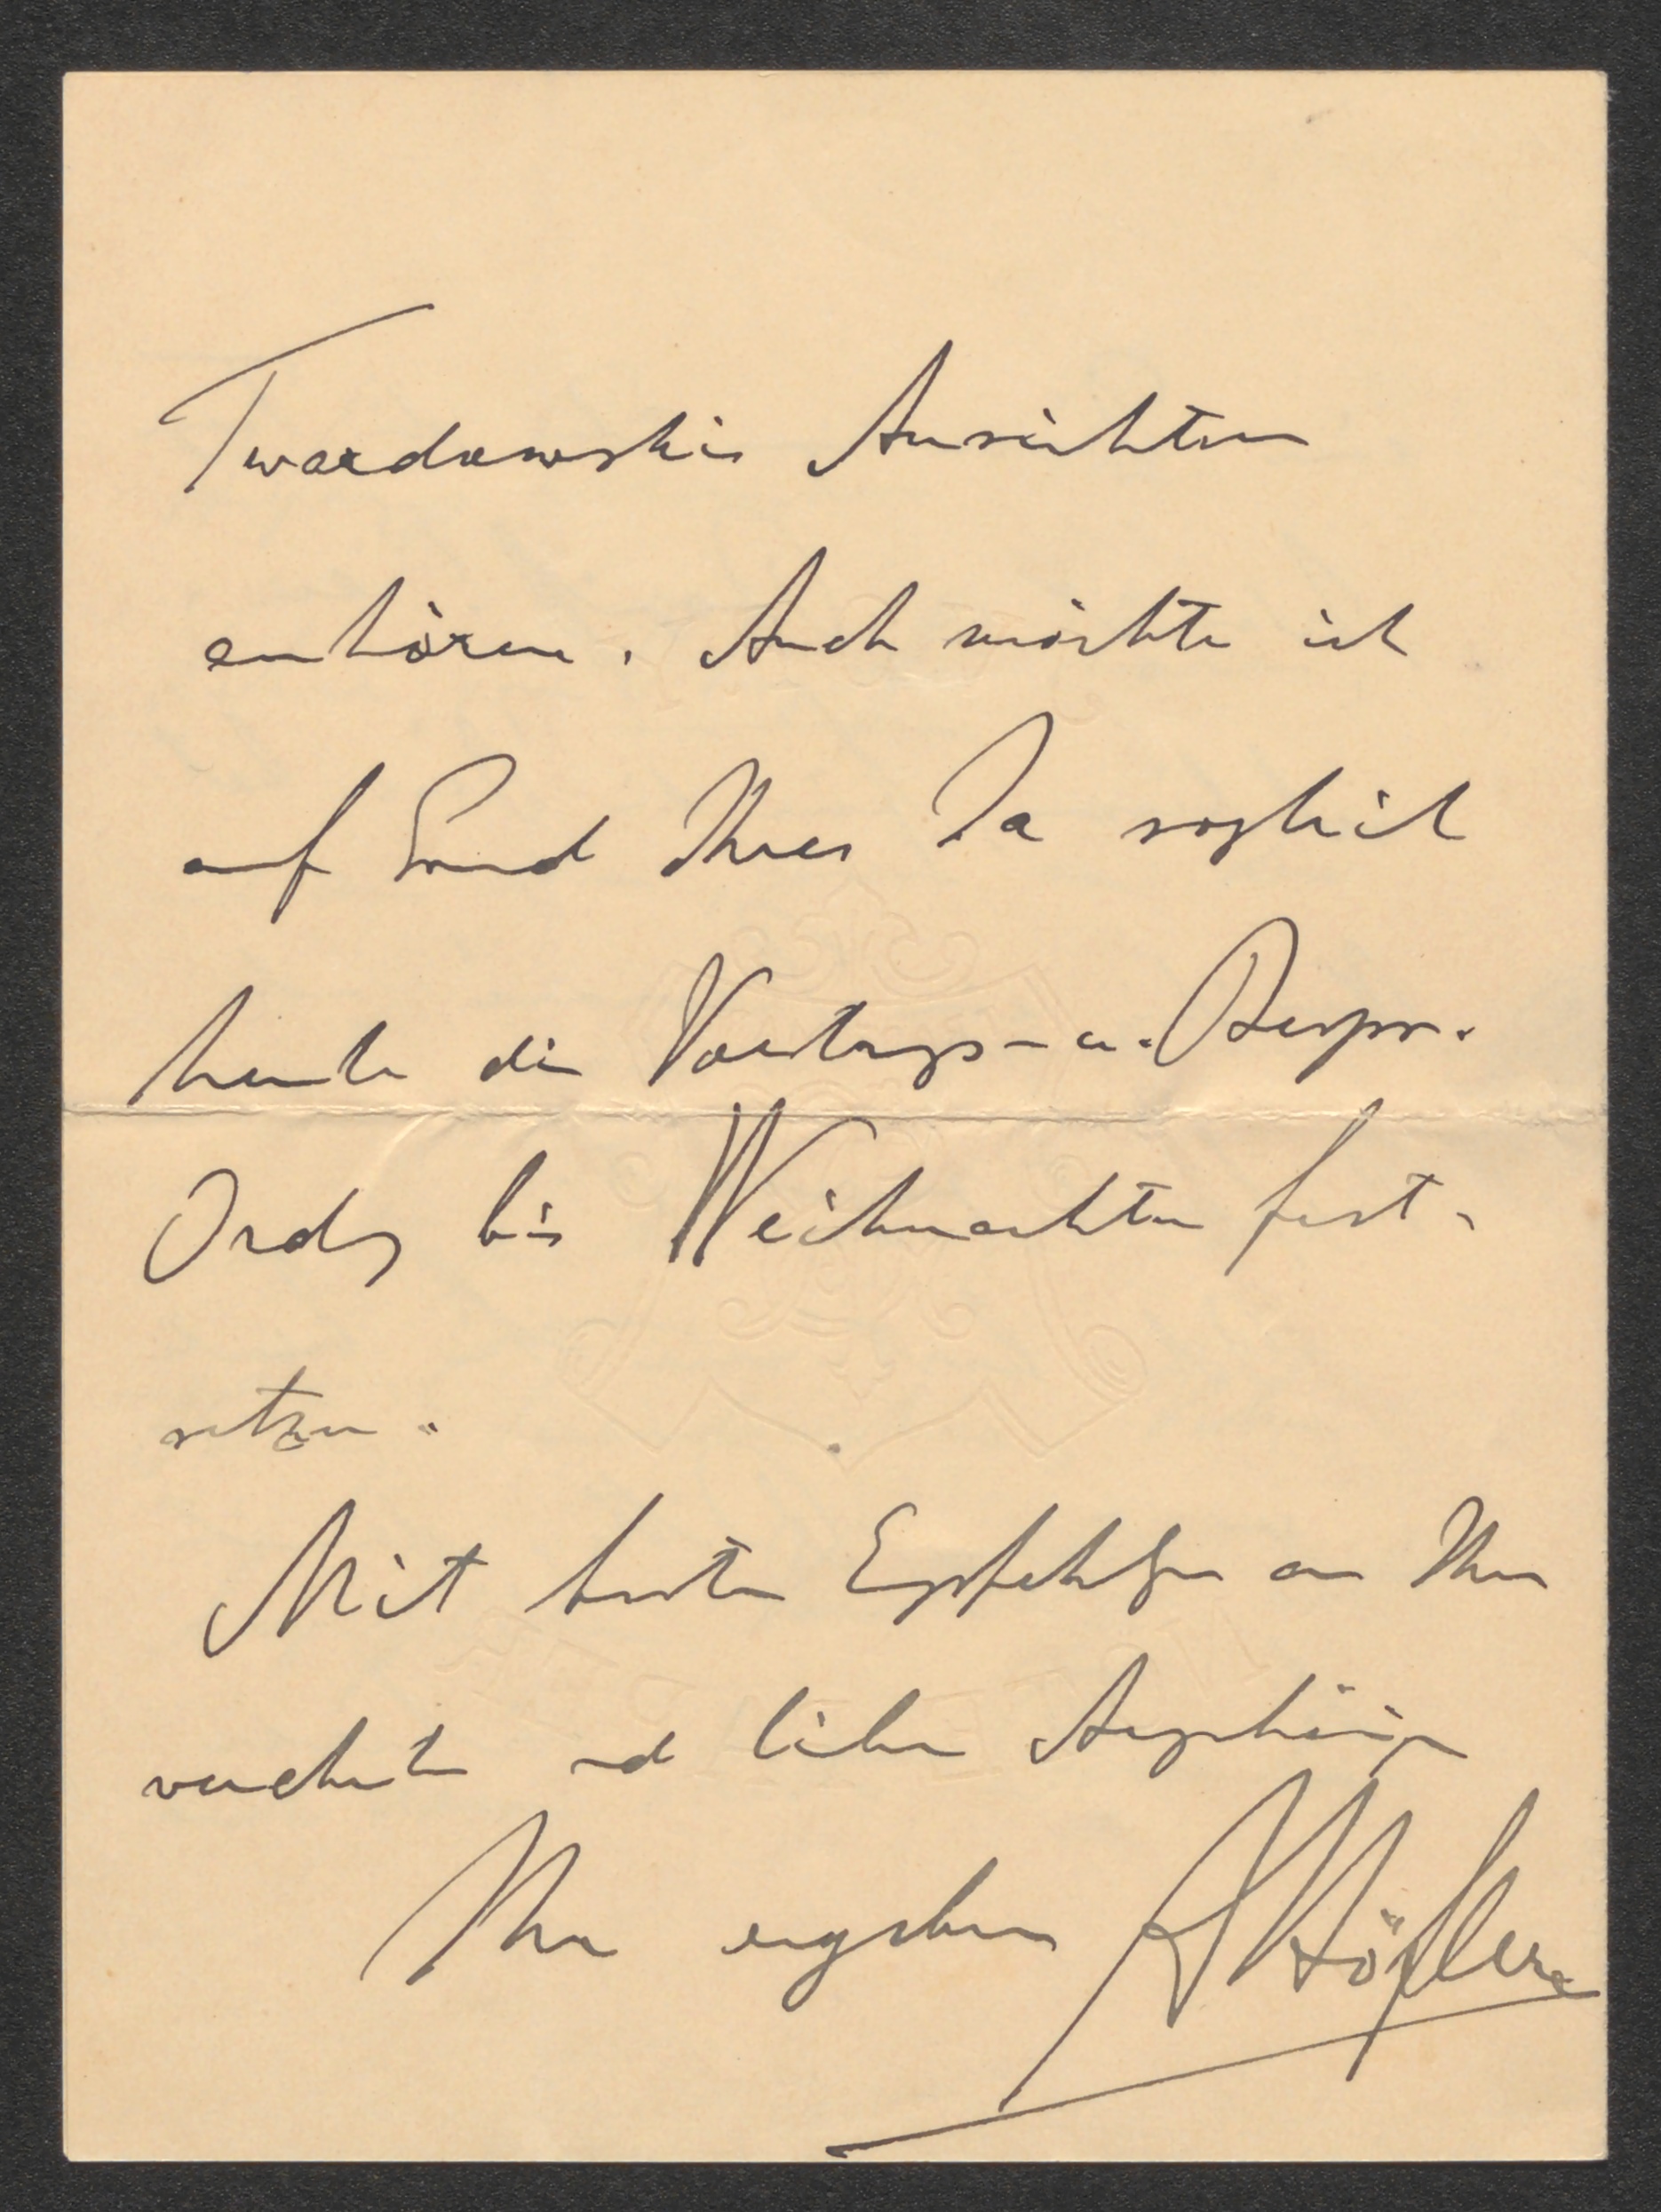 Twardowskis Ansichten
anhören. Auch möchte ich
auf Grund Ihres Ja sogleich
heute die Vortrags- u. Bespr.
Ordg bis Weihnachten fest-
setzen.
Mit besten Empfehlgen an Ihre
verehrten und lieben Angehörigen
Ihr ergebener AHöfler